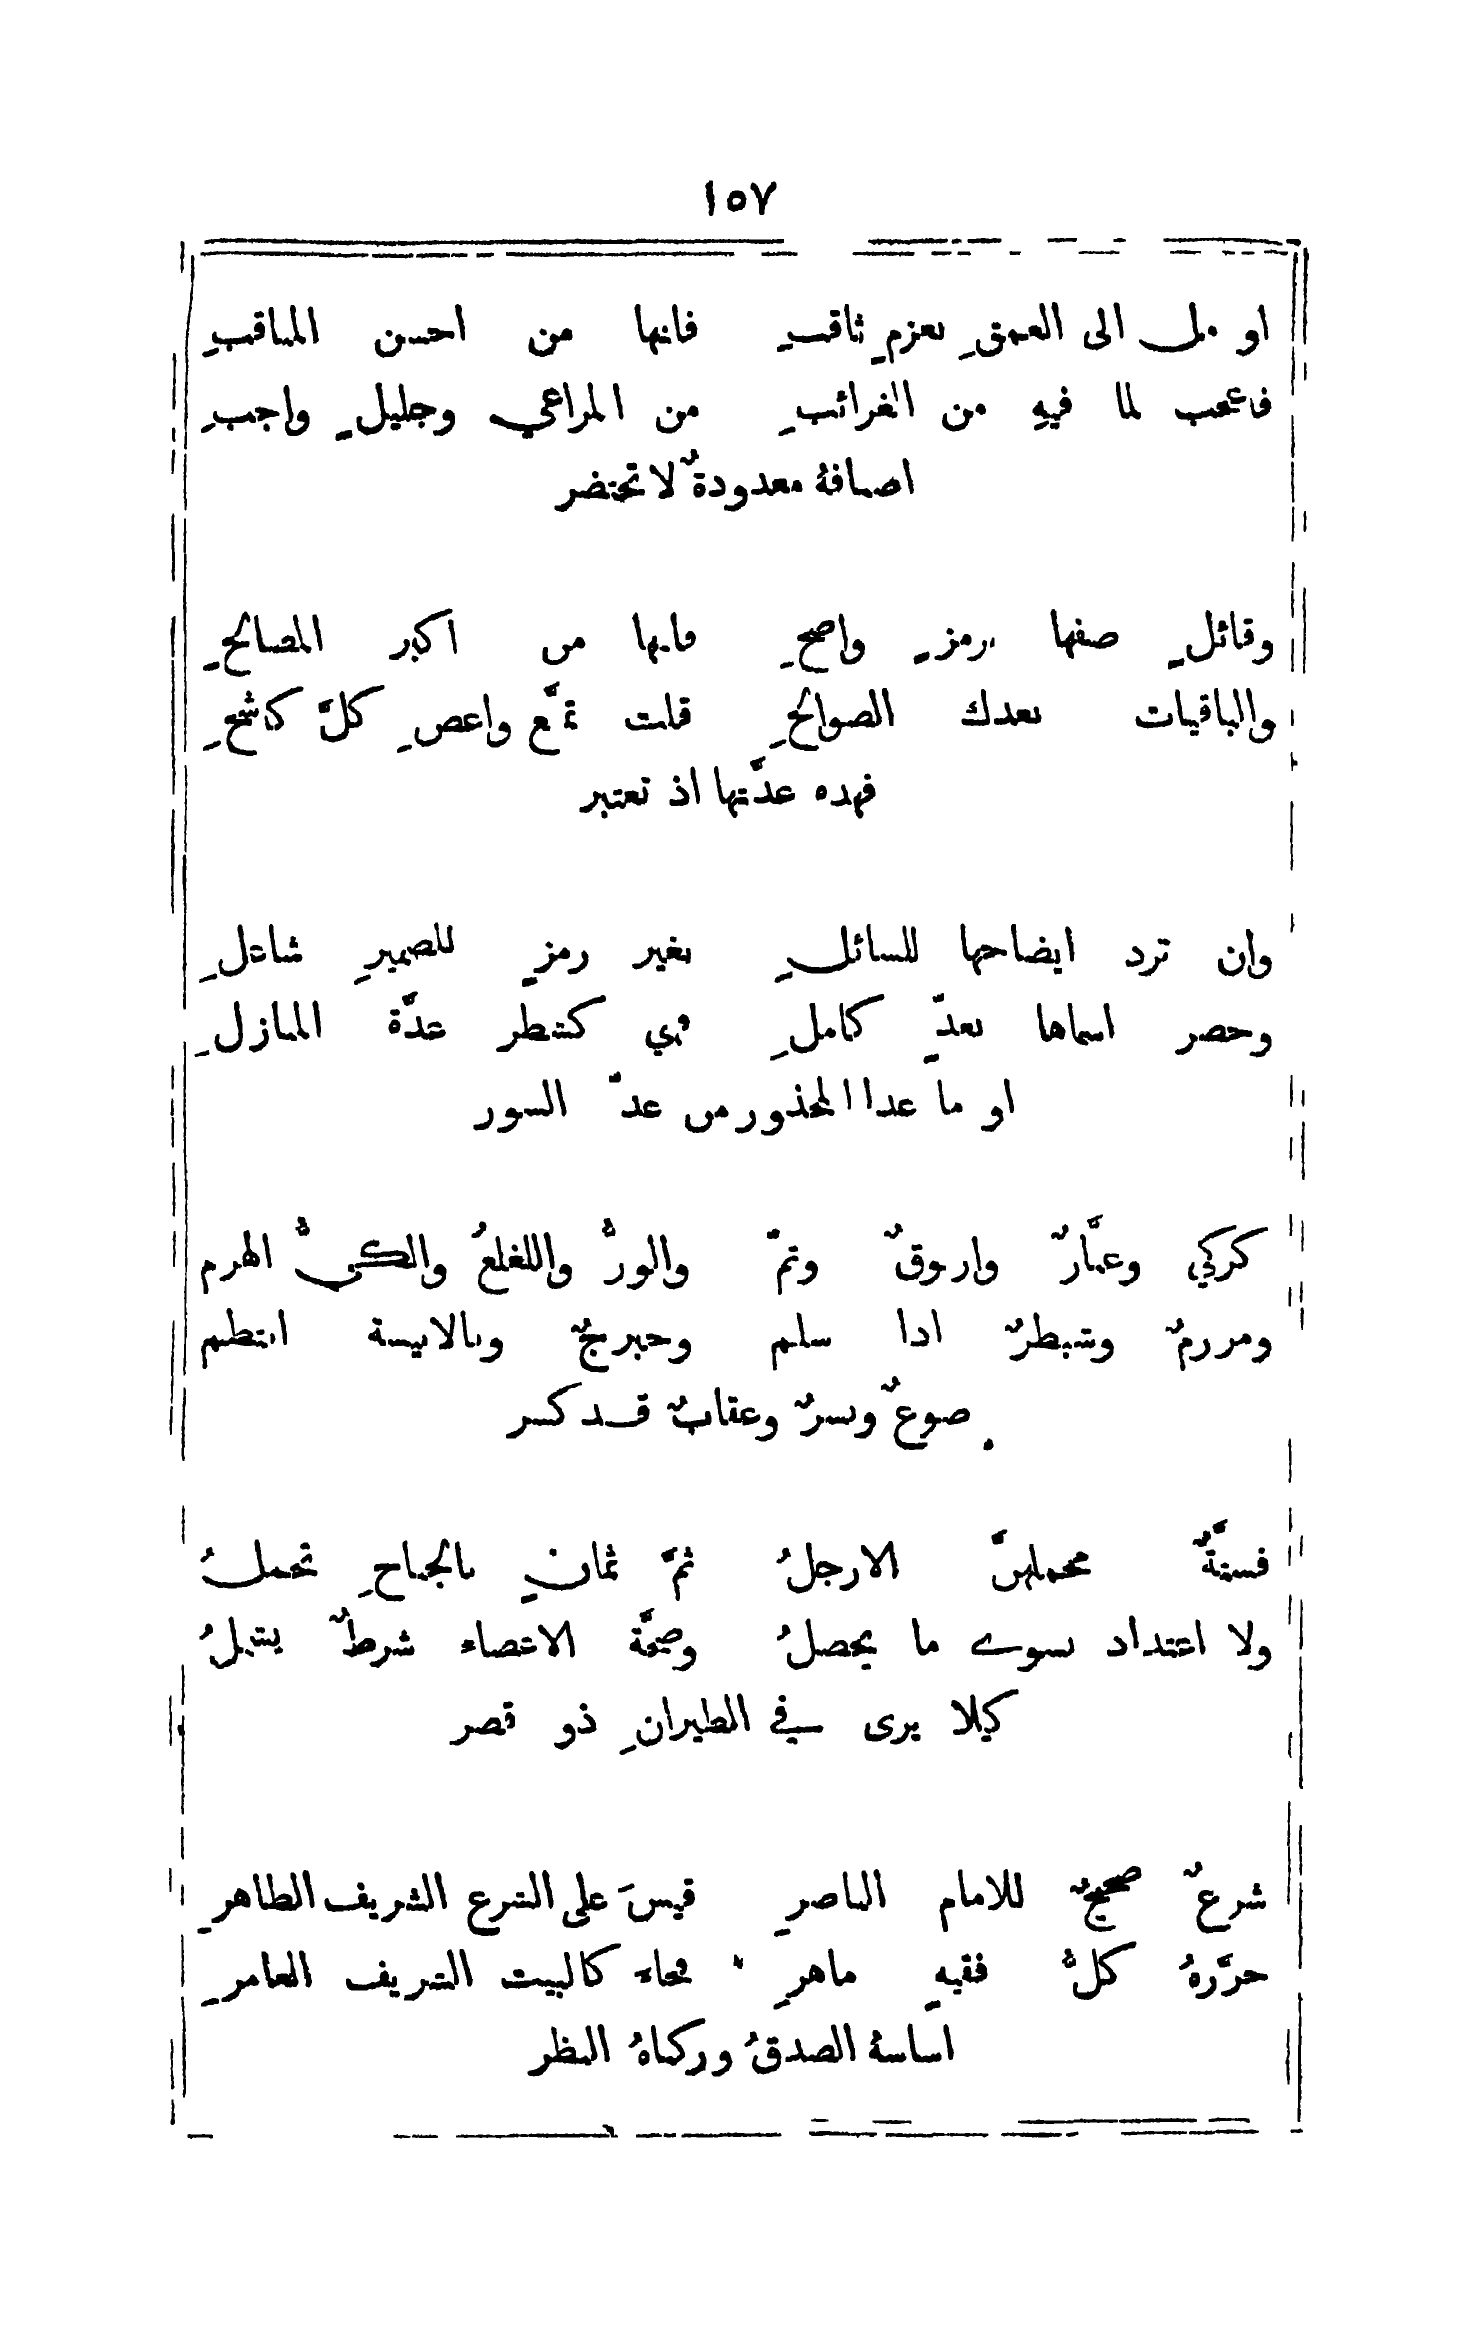 ١٥٧
او مل الى العمق بعزمٍ ثاقبِ فانها من احسن المناقبِ
فاعجب لما فيهِ من الغرائبِ من المراعي وجليلٍ واجبِ
اصنافهُ معدودةٌ لا تختضر
وقائلٍ صفها برمزٍ واضحِ فانها من اكبر المصالحِ
والباقيات بعدك الصوالحِ قلت تمتَّع واعصِ كلَّ كاشحِ
فهذه عدَّتها اذ تعتبر
وان ترد ايضاحها للسائلِ بغير رمزٍ للضميرِ شاغلِ
وحصر اسماها بعدٍّ كاملِ فهي كشطر عدَّة المنازلِ
او ما عدا المحذور من عدّ السور
كركي وعنَّازٌ وارنوقٌ وتمّ والوزُّ واللغلغُ والكيُّ الهرم
ومرزمٌ وشبطرٌ اذا سلم وحبرجٌ وبالانيسة انتظم
صوغٌ ونسرٌ وعقابٌ قد كسر
فستَّةٌ محملهنَّ الارجلُ ثمَّ ثمانٍ بالجناحِ تحملُ
ولا اعتداد بسوى ما يحصلُ وصحَّة الاعضاء شرطٌ يشملُ
كيلا يرى في الطيرانِ ذو قصر
شرعٌ صحيحٌ للامام الناصرِ قيسَ على الشرع الشريف الطاهرِ
حرَّرهُ كلُّ فقيهٍ ماهرِ فجاءَ كالبيت الشريف العامرِ
اساسهُ الصدقُ وركناهُ النظر